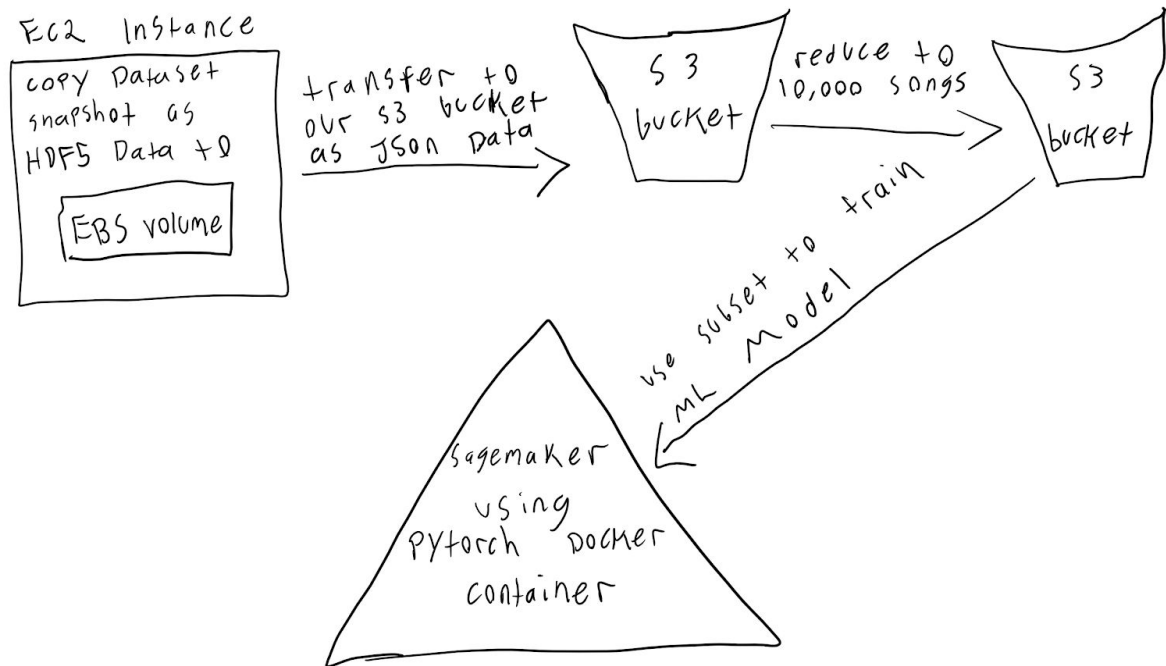 EC2 Instance
copy Dataset
snapshot as
HDF5 Data to
EBS volume
transfer to
our s3 bucket
as JSon Data
S3
bucket
reduce to
10,000 songs
S3
bucket
use subset to train
ML Model
Sagemaker
using
PYtorch Docker
container